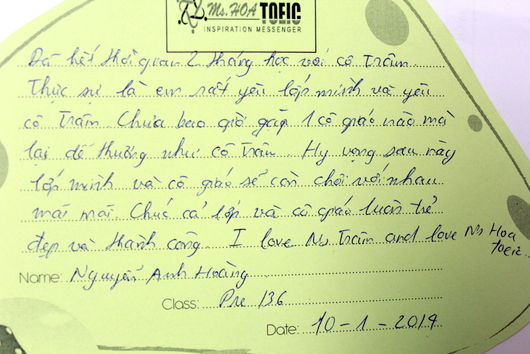 Ms. HOA TOEIC
INSPIRATION MESSENGER
Đã hết thời gian 2 tháng học với cô Trâm.
Thực sự là em rất yêu lớp mình và yêu
cô Trâm. Chưa bao giờ gặp 1 cô giáo nào mà
lại dễ thương như cô Trâm. Hy vọng sau này
lớp mình và cô giáo sẽ còn chơi với nhau
mãi mãi. Chúc cả lớp và cô giáo luôn trẻ
đẹp và thành công. I love Ms Trâm and love Ms Hoa
toeic.
Name: Nguyễn Anh Hoàng
Class: Pre 136
Date: 10-1-2019